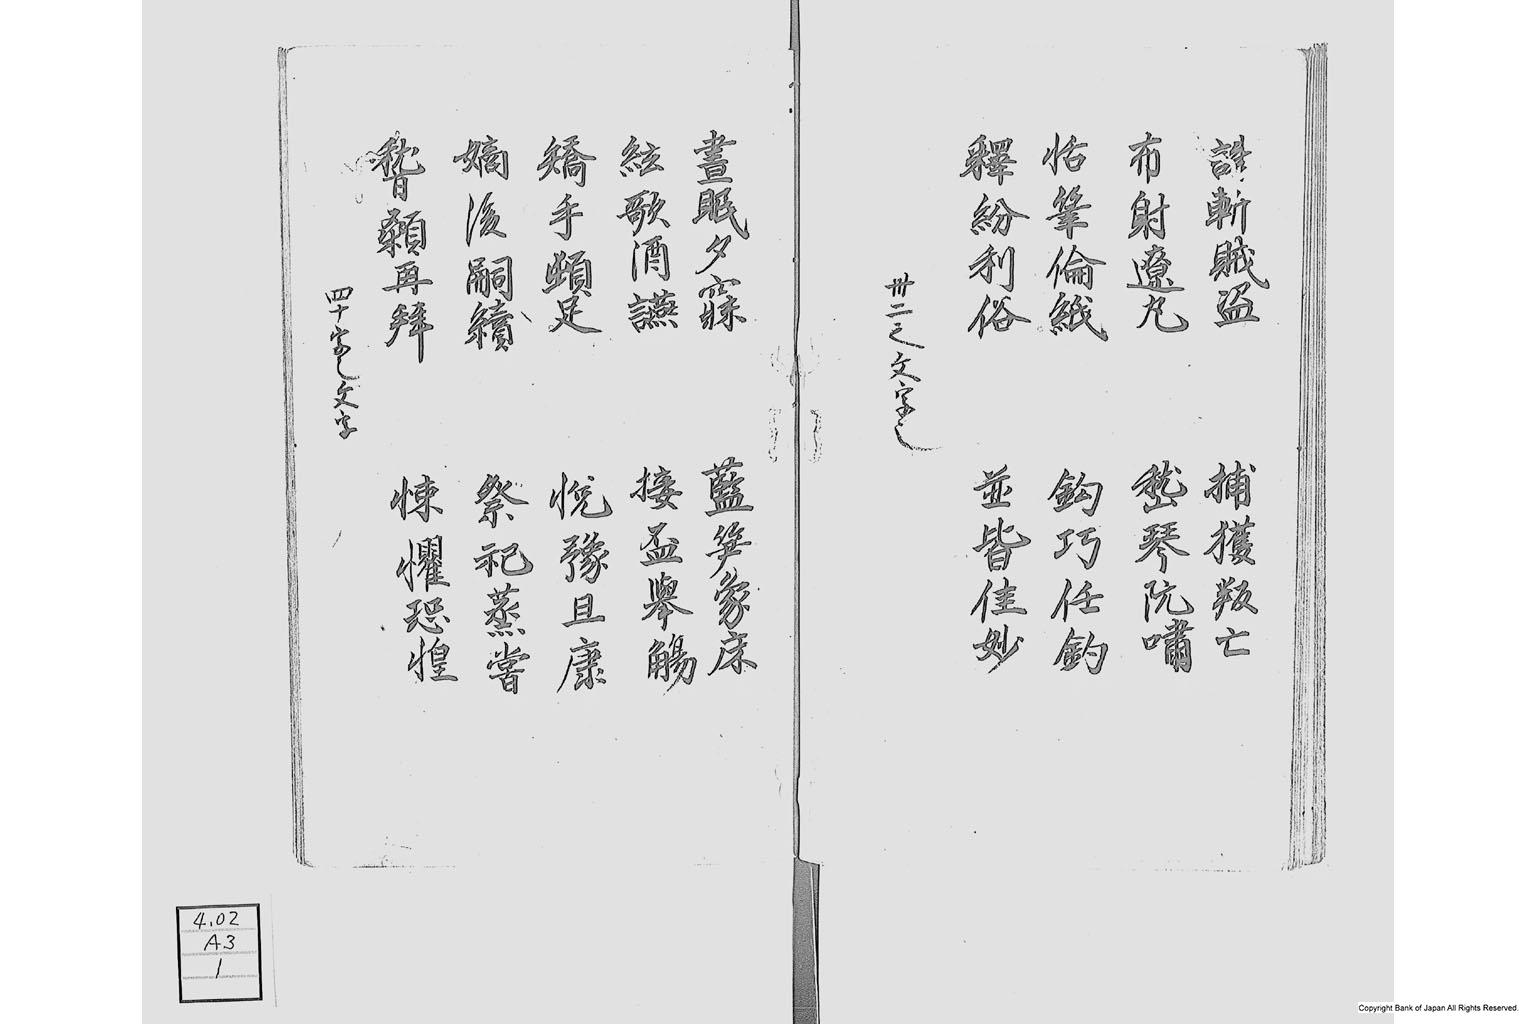 誅斬賊盗　捕獲叛亡
布射遼丸　嵇琴阮嘯
恬筆倫紙　鈞巧任釣
釋紛利俗　並皆佳妙
卅二之文字也
晝眠夕寐　藍笋象床
絃歌酒讌　接盃舉觴
矯手頓足　悦豫且康
嫡後嗣續　祭祀蒸嘗
稽顙再拜　悚懼恐惶
四十字之文字
4.02
A3
1
Copyright Bank of Japan All Rights Reserved.